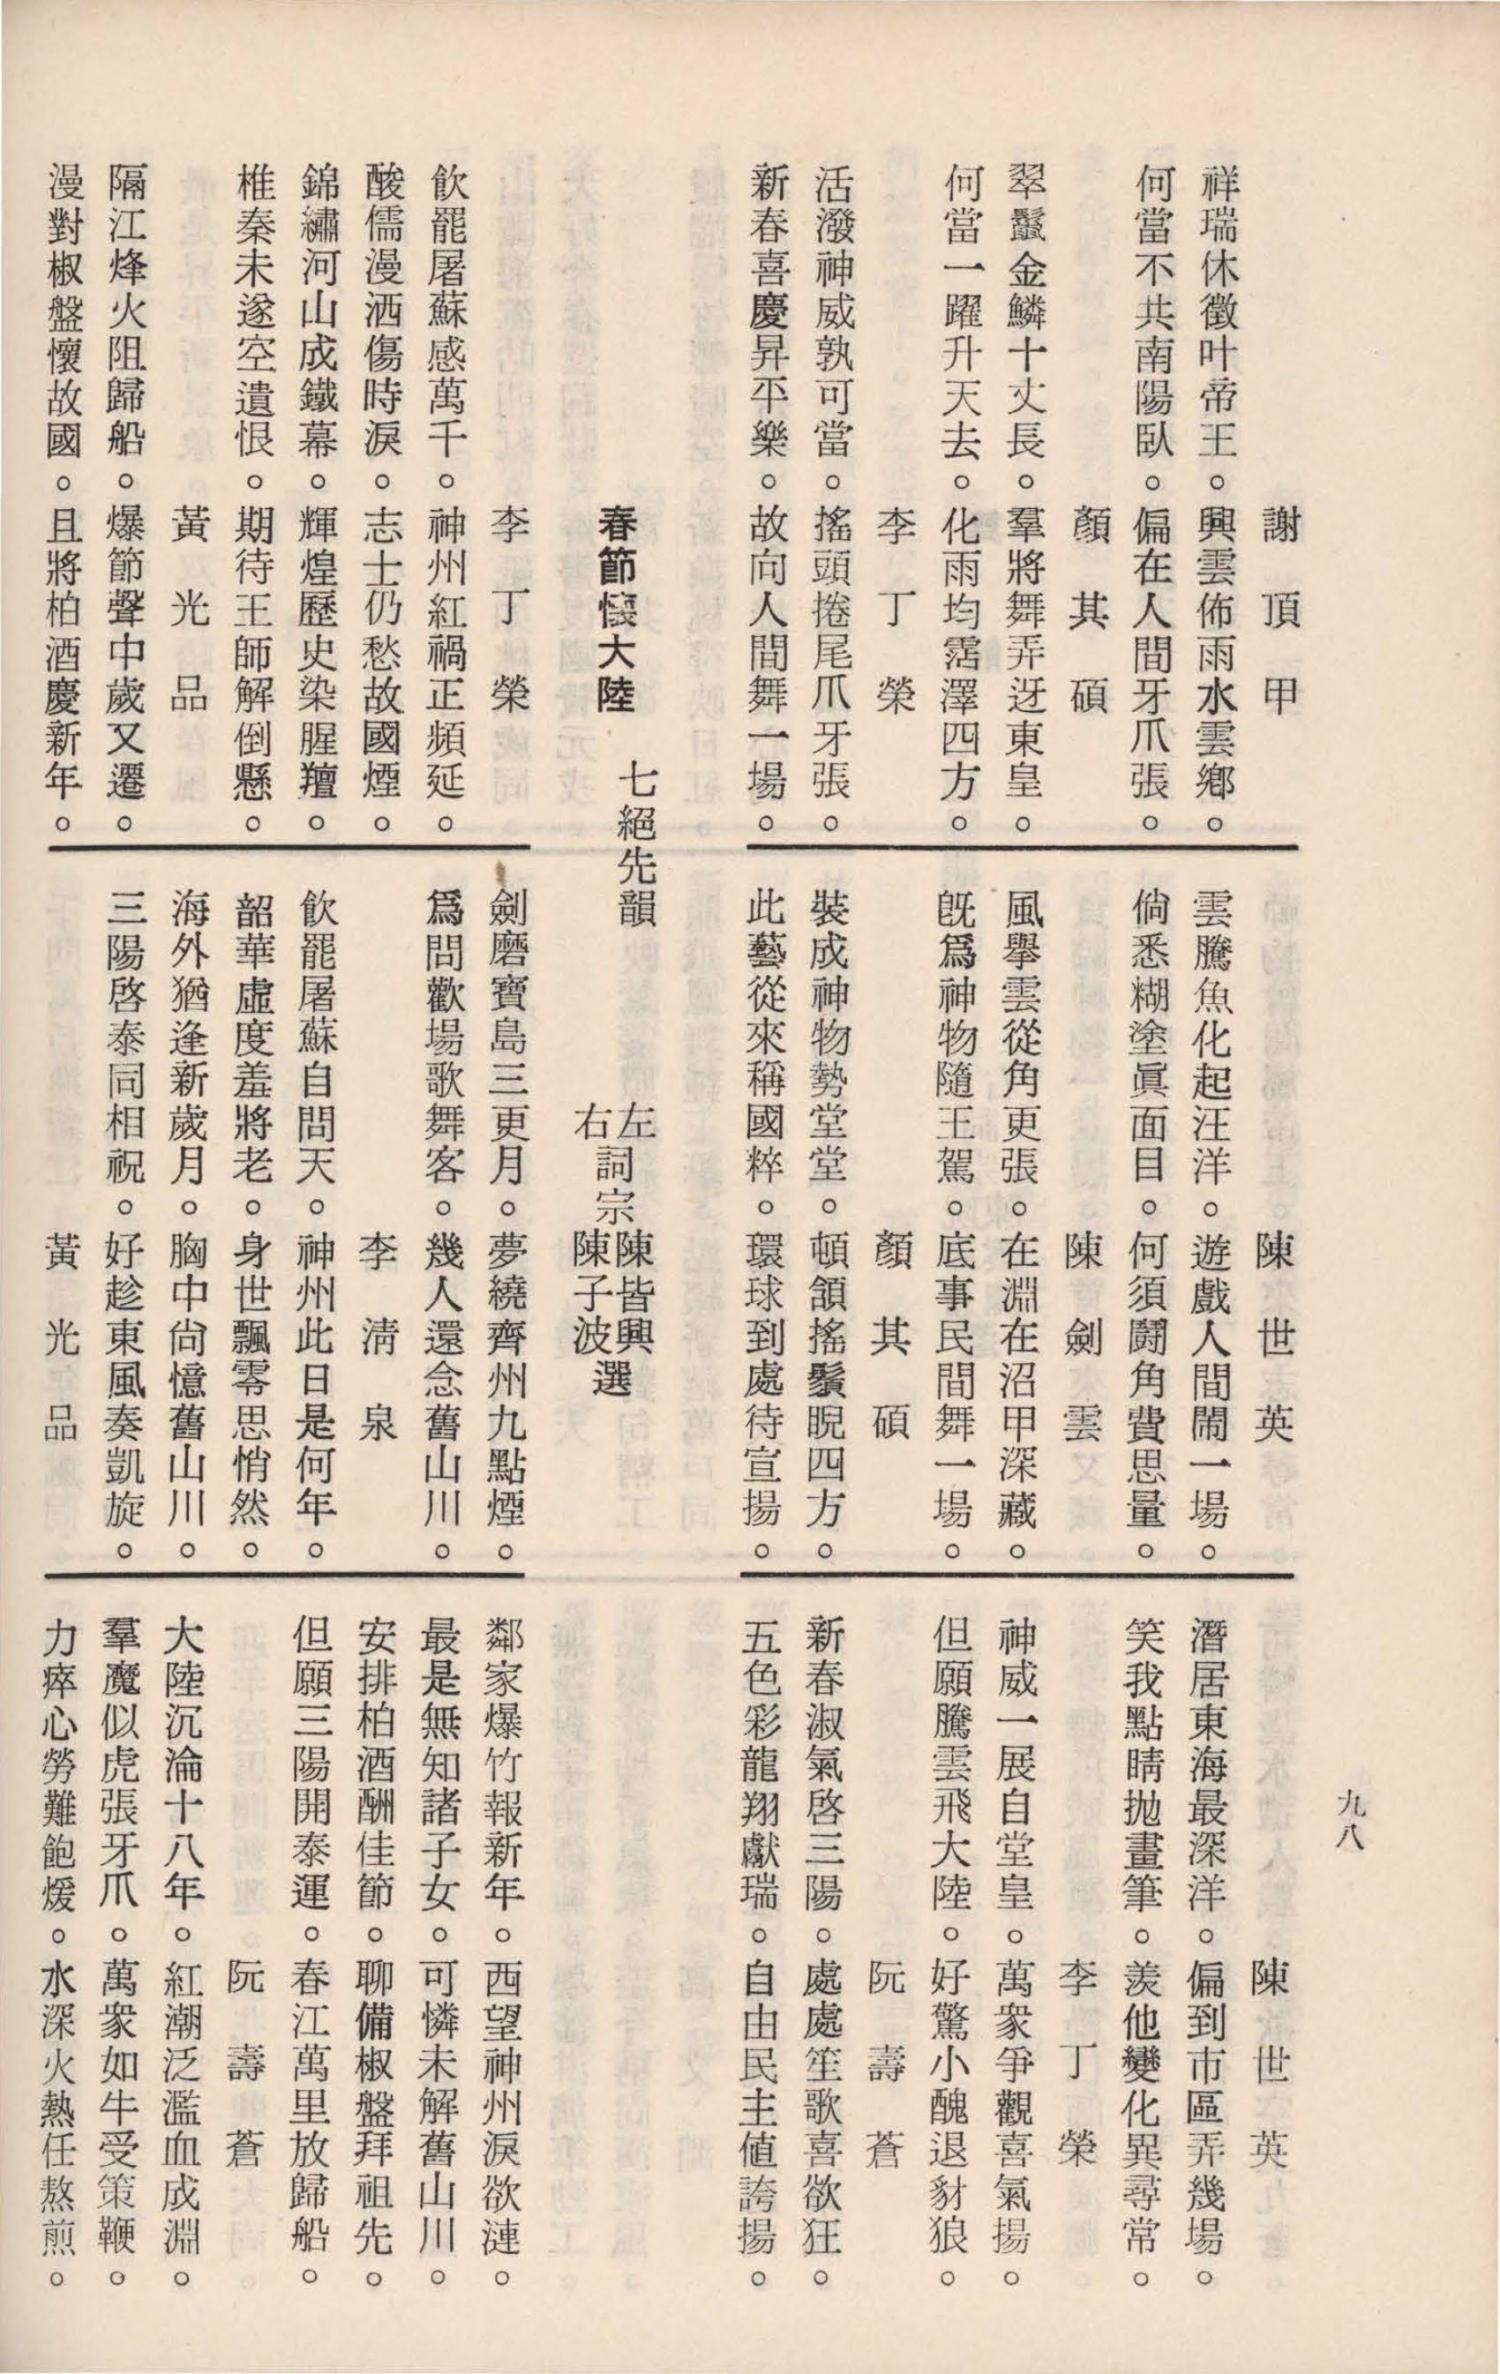 九八
謝頂甲
祥瑞休徵叶帝王。興雲佈雨水雲鄉。
何當不共南陽臥。偏在人間牙爪張。
顏其碩
翠鬣金鱗十丈長。羣將舞弄迓東皇。
何當一躍升天去。化雨均霑澤四方。
李丁榮
活潑神威孰可當。搖頭捲尾爪牙張。
新春喜慶昇平樂。故向人間舞一場。
陳世英
雲騰魚化起汪洋。遊戲人間鬧一場。
倘悉糊塗眞面目。何須鬪角費思量。
陳劍雲
風擧雲從角更張。在淵在沼甲深藏。
旣爲神物隨王駕。底事民間舞一場。
顏其碩
裝成神物勢堂堂。頓頷搖鬚睨四方。
此藝從來稱國粹。環球到處待宣揚。
陳世英
潛居東海最深洋。偏到市區弄幾場。
笑我點睛拋畫筆。羨他變化異尋常。
李丁榮
神威一展自堂皇。萬衆爭觀喜氣揚。
但願騰雲飛大陸。好驚小醜退豺狼。
阮壽蒼
新春淑氣啓三陽。處處笙歌喜欲狂。
五色彩龍翔獻瑞。自由民主値誇揚。
春節懷大陸 七絕先韻 左右詞宗 陳皆興 陳子波 選
李丁榮
飮罷屠蘇感萬千。神州紅禍正頻延。
酸儒漫洒傷時淚。志士仍愁故國煙。
錦繡河山成鐵幕。輝煌歷史染腥羶。
椎秦未遂空遺恨。期待王師解倒懸。
黃光品
隔江烽火阻歸船。爆節聲中歲又遷。
漫對椒盤懷故國。且將柏酒慶新年。
劍磨寶島三更月。夢繞齊州九點煙。
爲問歡場歌舞客。幾人還念舊山川。
李淸泉
飮罷屠蘇自問天。神州此日是何年。
韶華虛度羞將老。身世飄零思悄然。
海外猶逢新歲月。胸中尙憶舊山川。
三陽啓泰同相祝。好趁東風奏凱旋。
黃光品
鄰家爆竹報新年。西望神州淚欲漣。
最是無知諸子女。可憐未解舊山川。
安排柏酒酬佳節。聊備椒盤拜祖先。
但願三陽開泰運。春江萬里放歸船。
阮壽蒼
大陸沉淪十八年。紅潮泛濫血成淵。
羣魔似虎張牙爪。萬衆如牛受策鞭。
力瘁心勞難飽煖。水深火熱任熬煎。